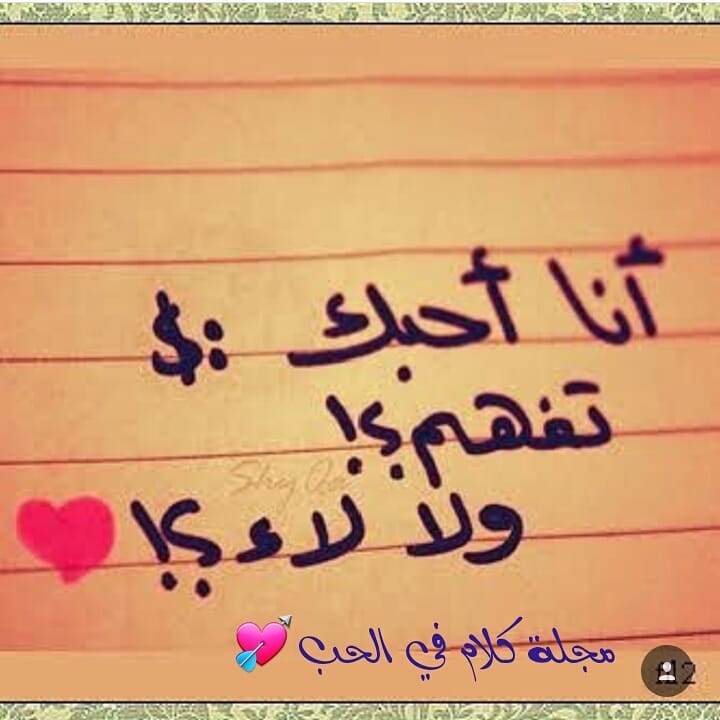 أنا أحبك :$
تفهم؟!
ولا لاء؟!
مجلة كلام في الحب 💘